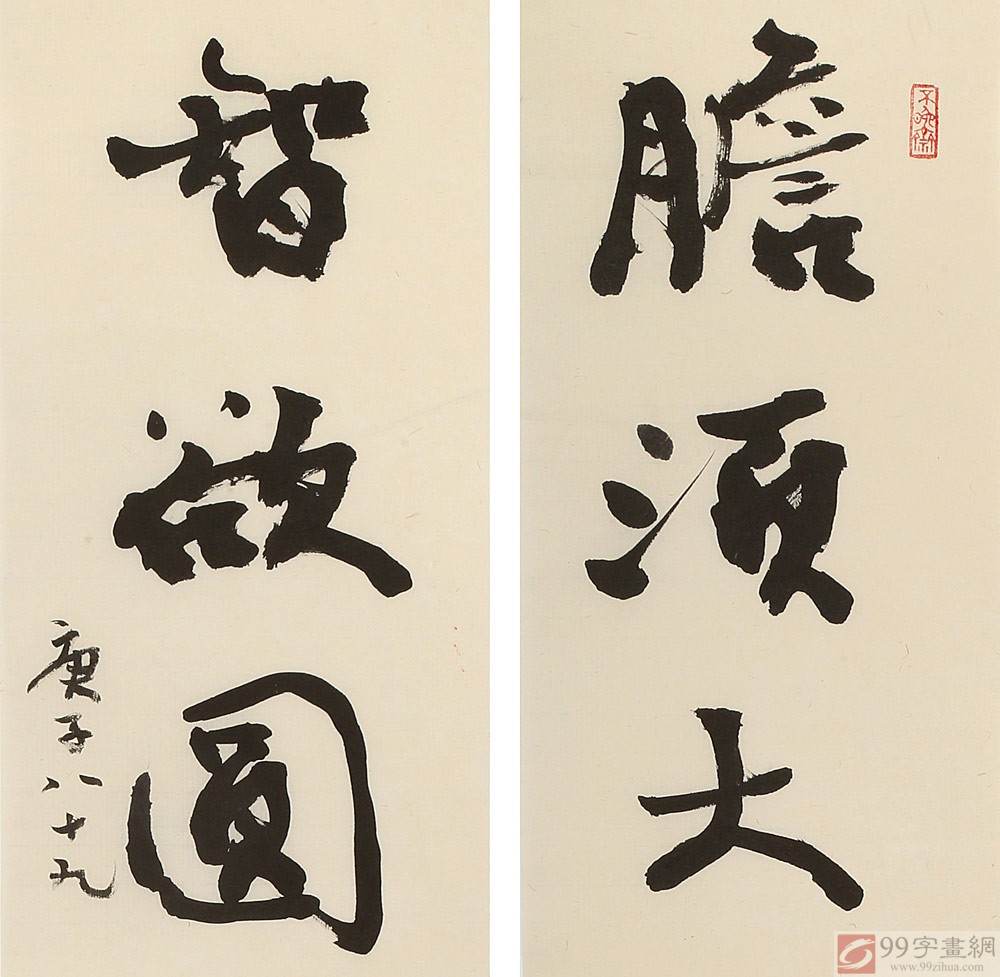 膽須大
智欲圓
庚子八十九
99字畫網
www.99zihua.com